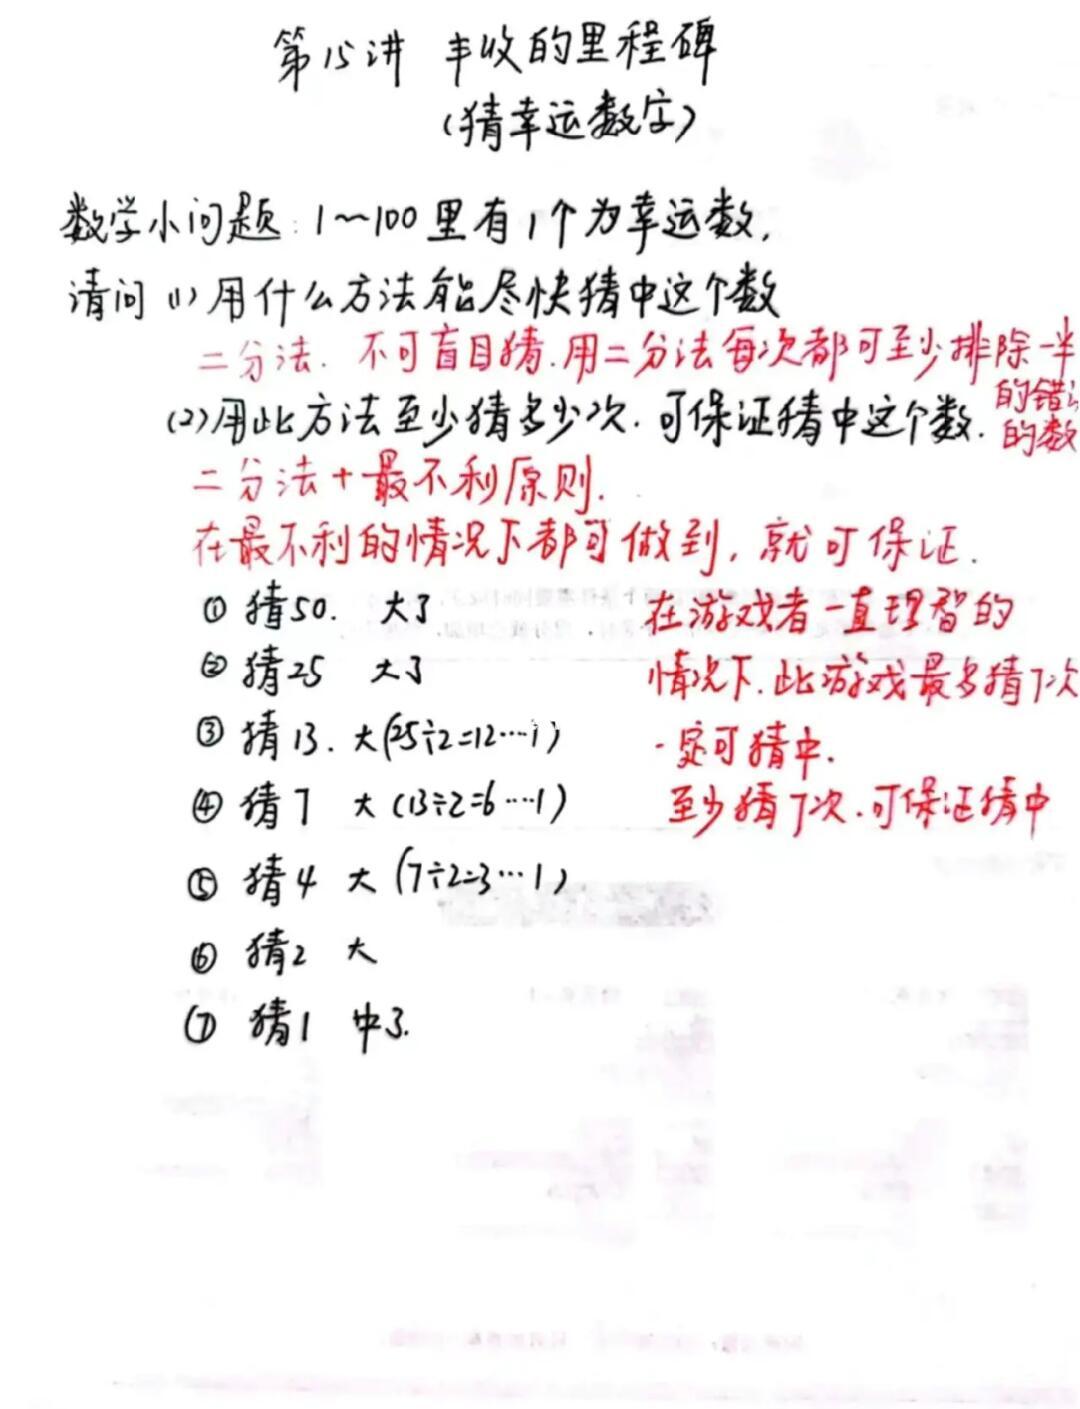 第15讲 丰收的里程碑
(猜幸运数字)
数学小问题:1~100里有1个为幸运数,
请问(1)用什么方法能尽快猜中这个数
二分法.不可盲目猜.用二分法每次都可至少排除一半
的错误
的数
(2)用此方法至少猜多少次.可保证猜中这个数.
二分法+最不利原则.
在最不利的情况下都可做到,就可保证.
①猜50. 大了
②猜25 大了
③猜13. 大(25÷2=12…1)
④猜7 大(13÷2=6…1)
⑤猜4 大(7÷2=3…1)
⑥猜2 大
⑦猜1 中了.
在游戏者一直理智的
情况下.此游戏最多猜7次
一定可猜中.
至少猜7次.可保证猜中